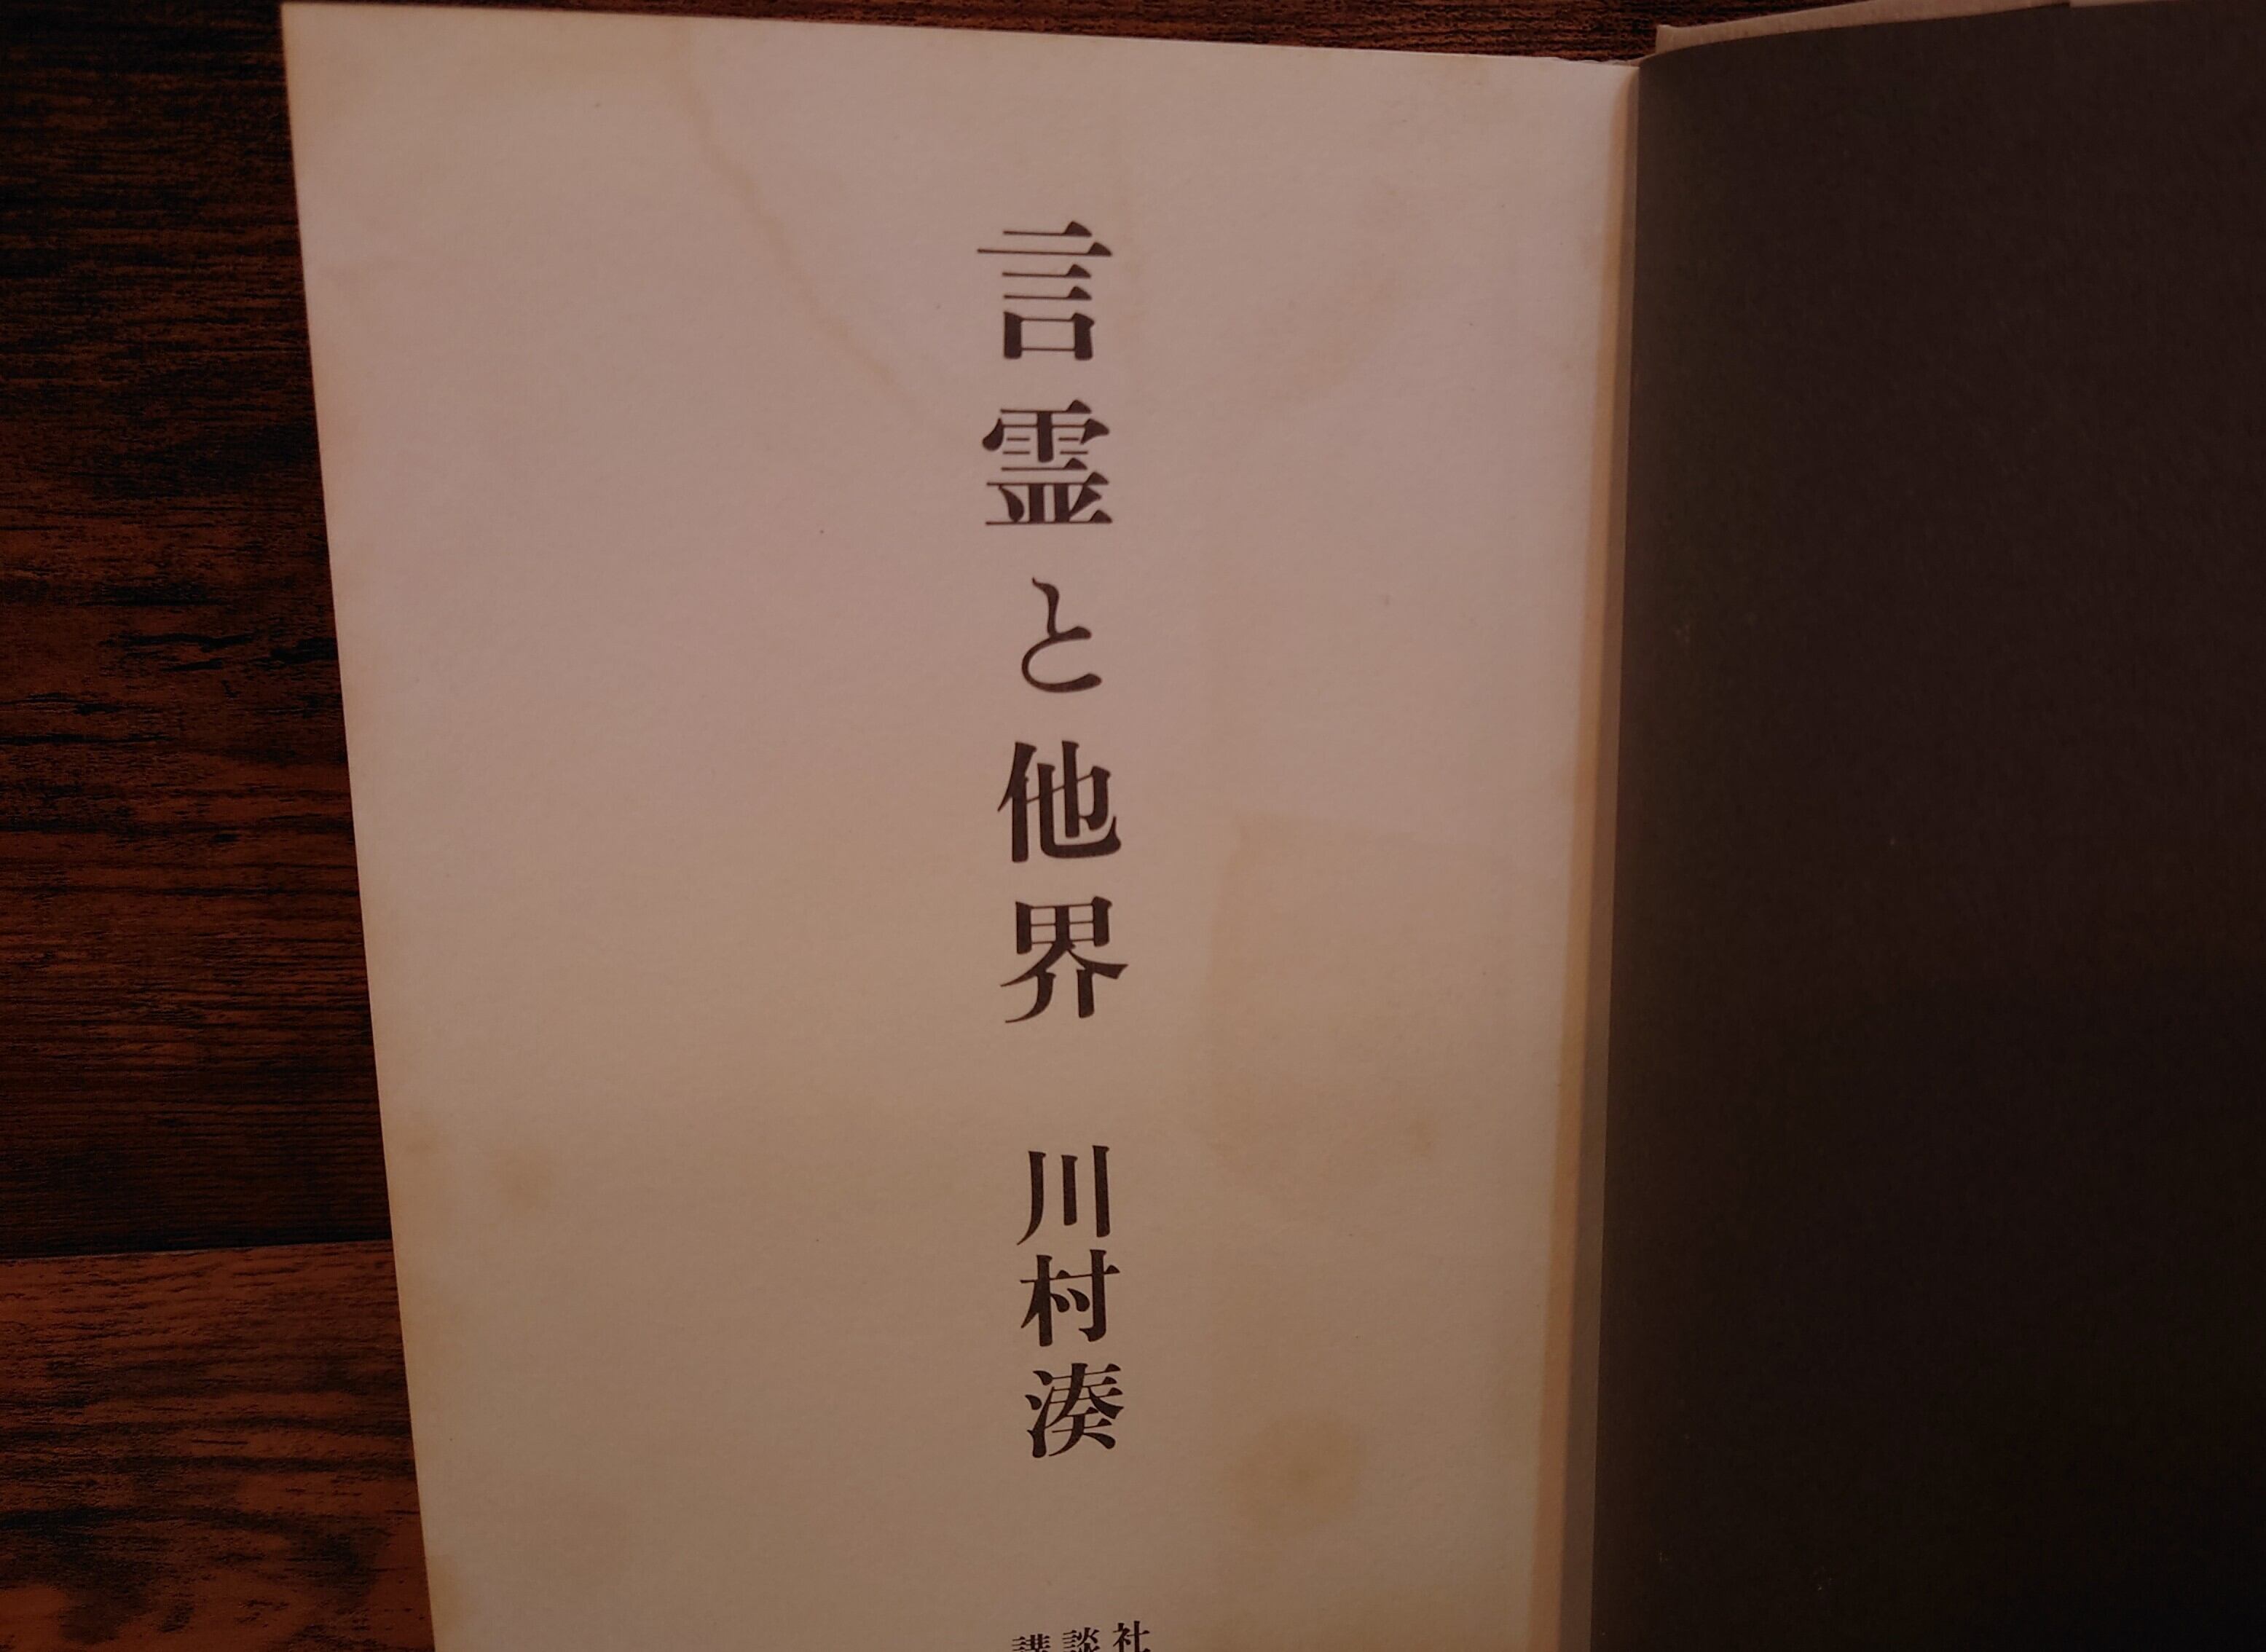 言霊と他界
川村湊
講談社